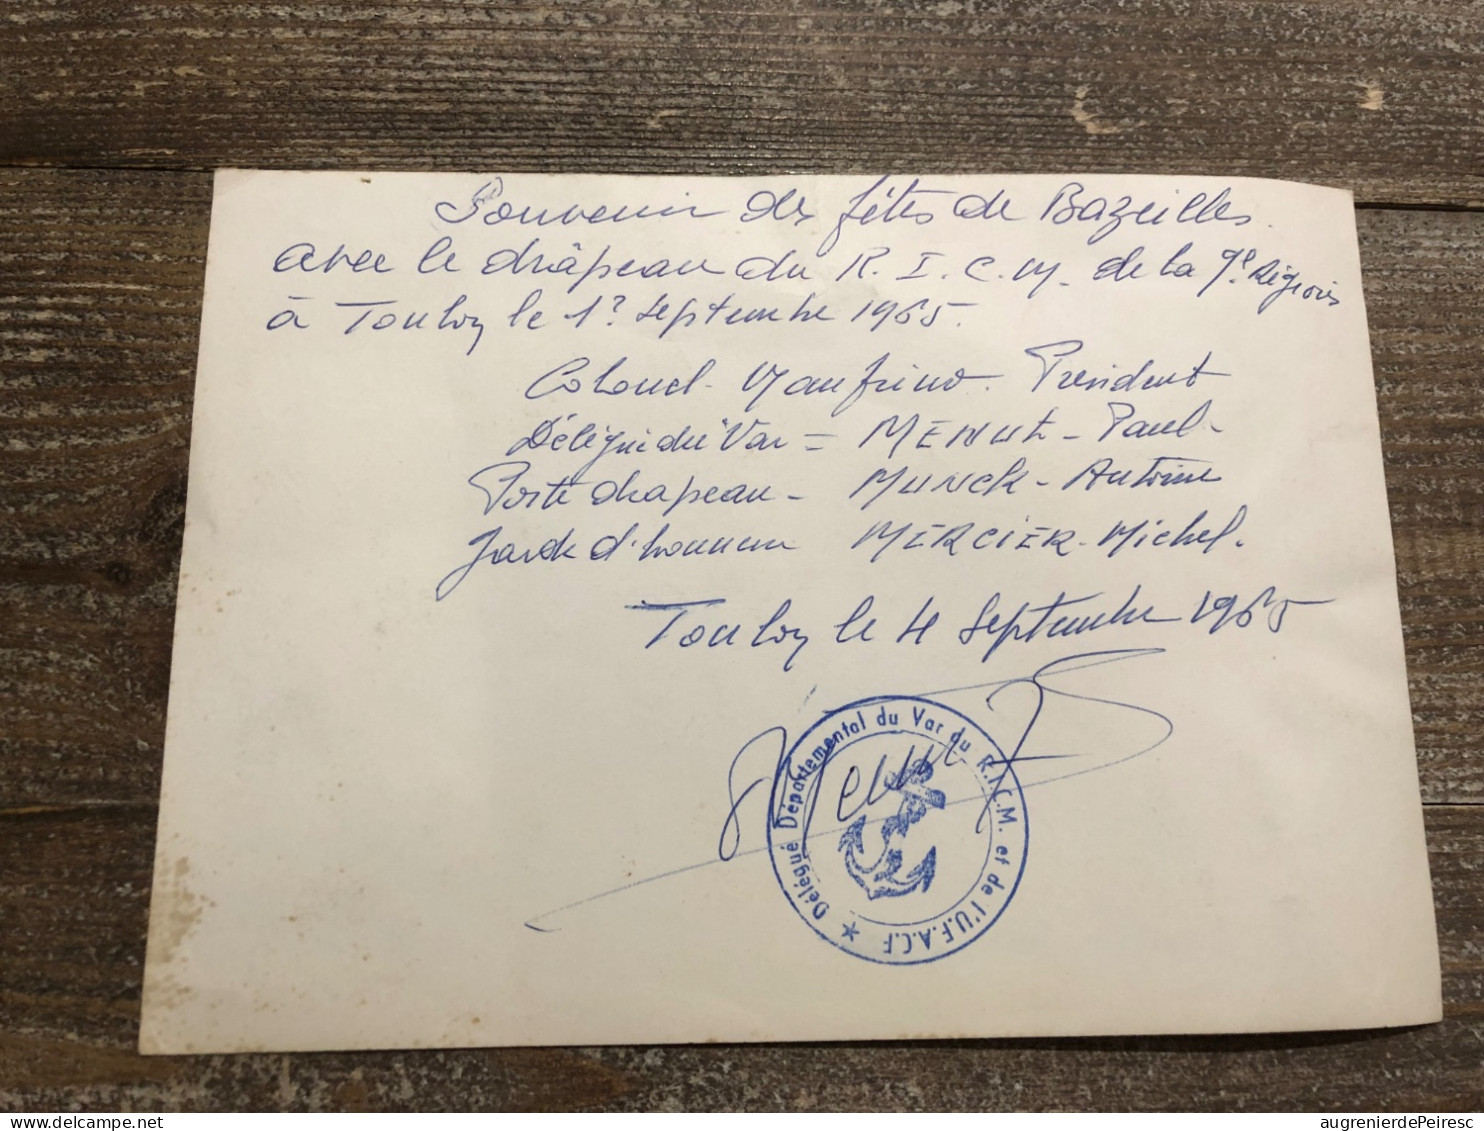 Souvenir des fêtes de Bazeilles.
avec le drâpeau du R. I. C. M. de la 9e. Région
à Toulon le 1? Septembre 1965.
Colonel Manfrino. Président
Délégué du Var = MENUt - Paul -
Porte drapeau - MUNCK - Antoine
Garde d'honneur MERCIER - Michel.
Toulon le 4 Septembre 1965
Menut
Délégué Départemental du Var du R.I.C.M. et de l'U.F.A.C.F
augrenierdePeiresc